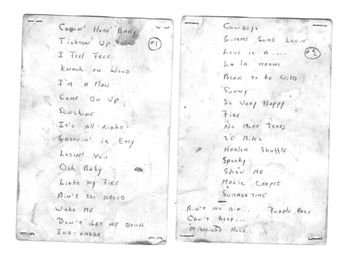 Comin' Home Baby
#1
Tighten Up
I Feel Free
Knock on Wood
I'm A Man
Come On Up
Sunshine
It's All Right
Groovin' is Easy
Losin' You
Ooh Baby
Light My Fire
Ain't too proud
Wake Me
Don't Let Me Down
Cowboys
Gimme Some Lovin'
#2
Love is A ...
La La means
Born to be Wild
Sunny
So Very Happy
Fire
No More Tears
25 Miles
Harlem Shuffle
Spooky
Show Me
Magic Carpet
Summertime
Ain't No
Purple Haze
Can't Keep...
Midnight Hour